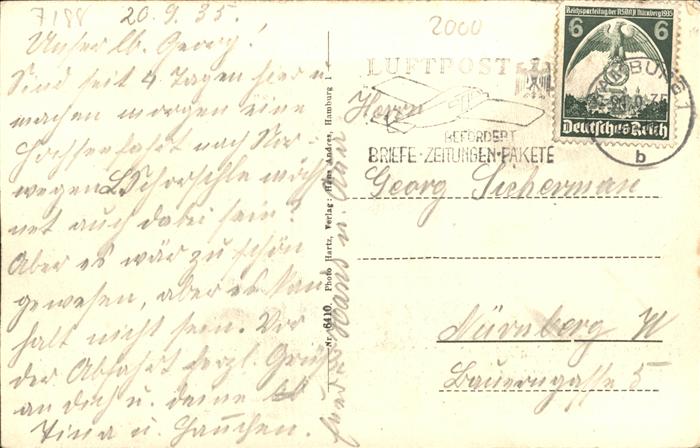 7188
20. 9. 35.
Unser lb. Georg!
Sind seit 4 Tagen hier u.
machen morgen eine
Hochseefahrt nach Nor-
wegen. Schorschle möch
net auch dabei sein?
Aber es wär zu schön
gewesen, aber es
halt nicht sein. Vor
der Abfahrt herzl. Grüße
an dich u. deine
Tina u. Hännchen.
Hans u.
Nr. 6410. Photo Hartz, Verlag: Hans Andres, Hamburg 1
2000
LUFTPOST
BEFÖRDERT
BRIEFE·ZEITUNGEN·PAKETE
Reichsparteitag der NSDAP Nürnberg 1935
6 6
Deutsches Reich
HAMBURG 1
b
Herrn
Georg Sicherman
Nürnberg W
Bauerngasse 5